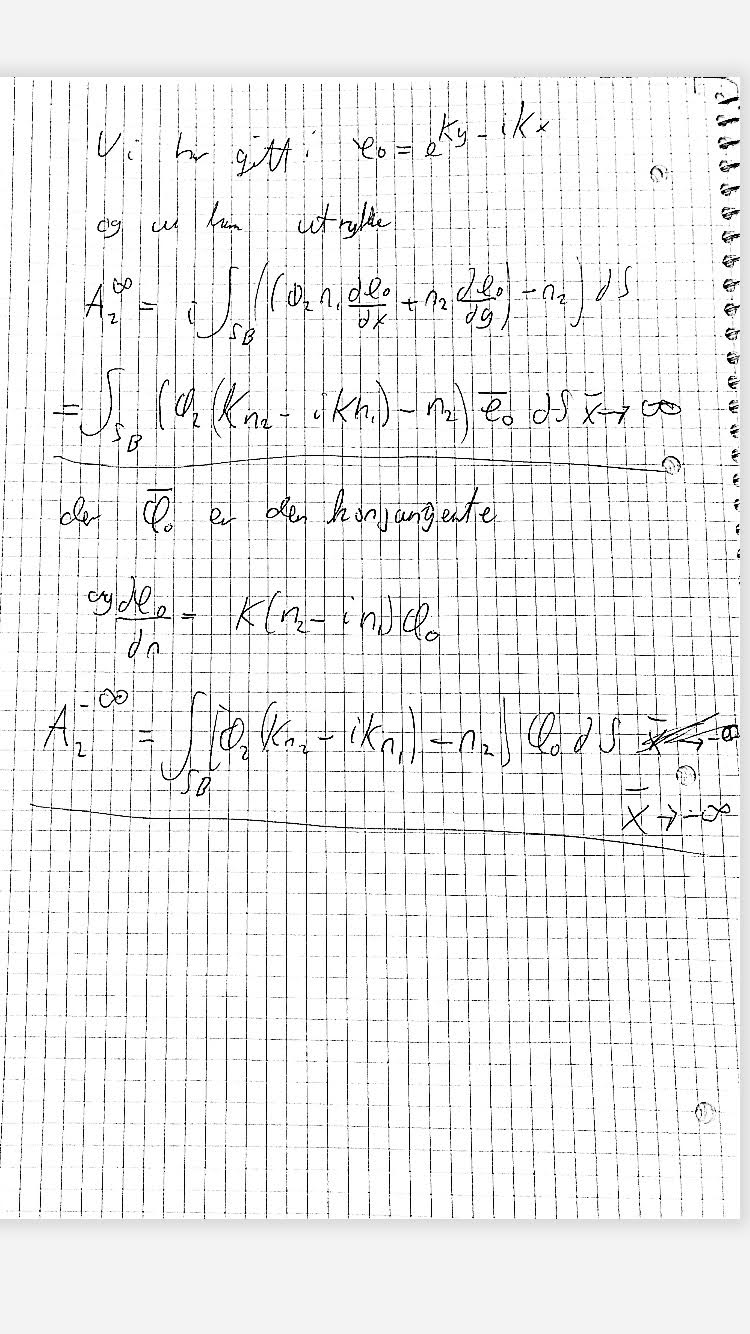 Vi har gitt i φ₀ = e^{Ky - iKx}
og vi kan utrykke
A₂^∞ = i ∫_{SB} ((Φ₂ n₁ dφ₀/dx + n₂ dφ₀/dy) - n₂] dS
= ∫_{SB} (Φ₂(Kn₂ - iKn₁) - n₂) φ̄₀ dS x̄ → ∞
der φ̄₀ er den konjungente
og dφ₀/dn = K(n₂ - in₁)φ₀
A₂^{-∞} = ∫_{SB} [Φ₂(Kn₂ - iKn₁) - n₂] φ₀ dS
x̄ → -∞